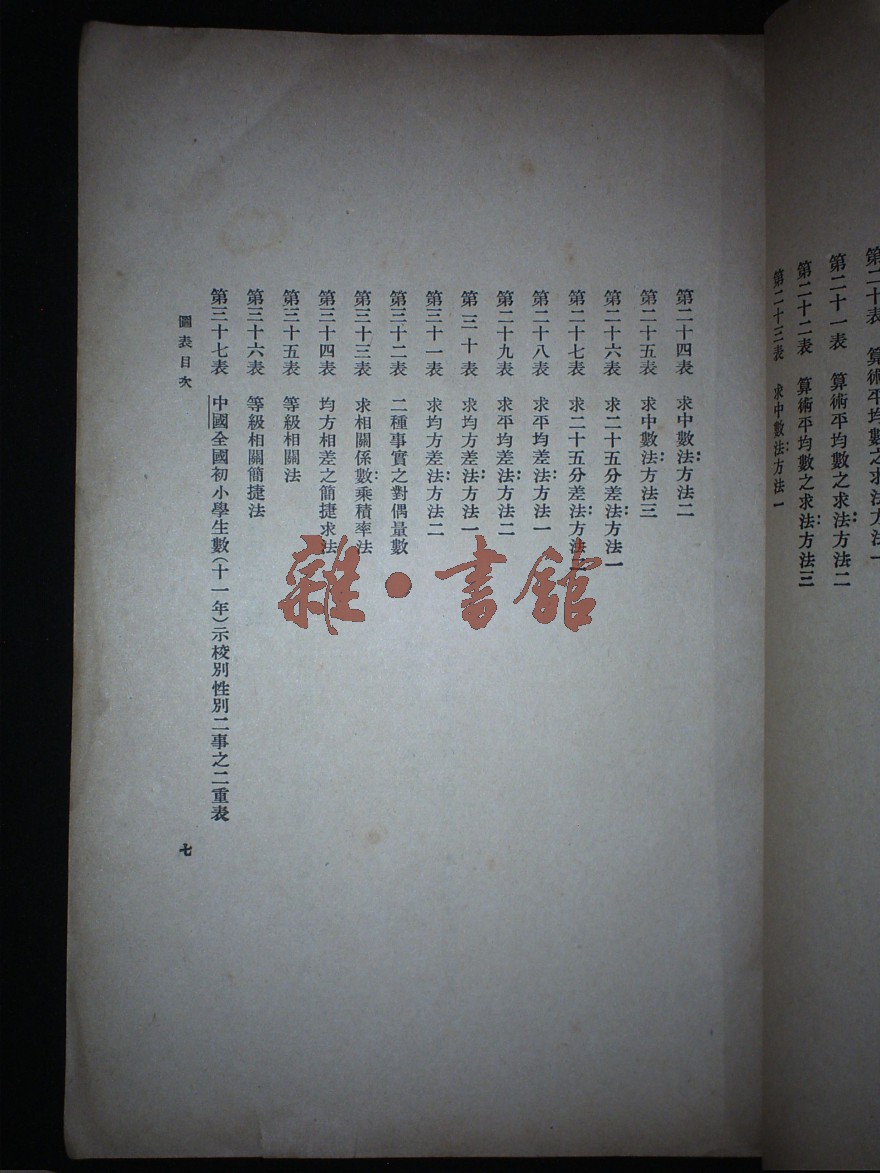 第二十表　算術平均數之求法方法一
第二十一表　算術平均數之求法：方法二
第二十二表　算術平均數之求法：方法三
第二十三表　求中數法：方法一
第二十四表　求中數法：方法二
第二十五表　求中數法：方法三
第二十六表　求二十五分差法：方法一
第二十七表　求二十五分差法：方法二
第二十八表　求平均差法：方法一
第二十九表　求平均差法：方法二
第三十表　求均方差法：方法一
第三十一表　求均方差法：方法二
第三十二表　二種事實之對偶量數
第三十三表　求相關係數：乘積率法
第三十四表　均方相差之簡捷求法
第三十五表　等級相關法
第三十六表　等級相關簡捷法
第三十七表　中國全國初小學生數（十一年）示校別性別二事之二重表
圖表目次
七
雜·書館